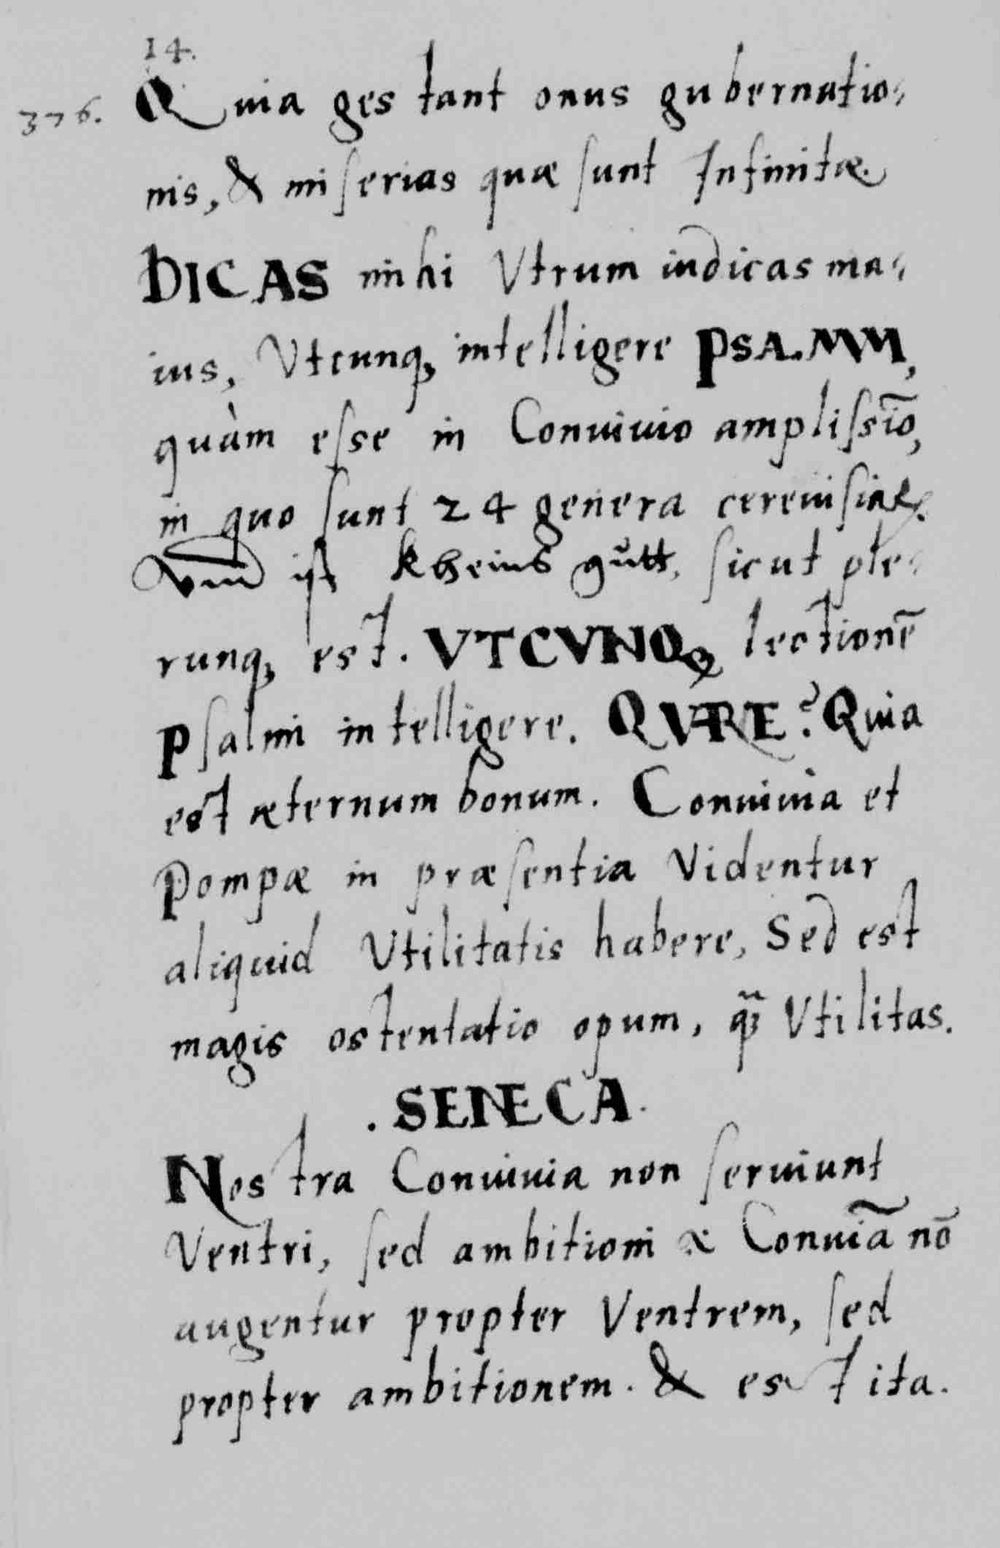 14.
376. Quia gestant onus gubernatio-
nis, & miserias quæ sunt Infinitæ.
DICAS mihi Vtrum iudicas ma-
ius, Vtcunq; intelligere PSA.MVM,
quàm esse in Conuiuio amplissīo,
in quo sunt 24 genera cereuisiae.
Vnd ist kheins gůtt, sicut ple-
runq; est. VTCVNQ; lectionē
Psalmi intelligere. QVARE? Quia
est æternum bonum. Conuiuia et
Pompæ in præsentia Videntur
aliquid Vtilitatis habere, Sed est
magis ostentatio opum, q̃ Vtilitas.
. SENECA .
Nostra Conuiuia non seruiunt
Ventri, sed ambitioni & Conuiā nō
augentur propter Ventrem, sed
propter ambitionem. & est ita.